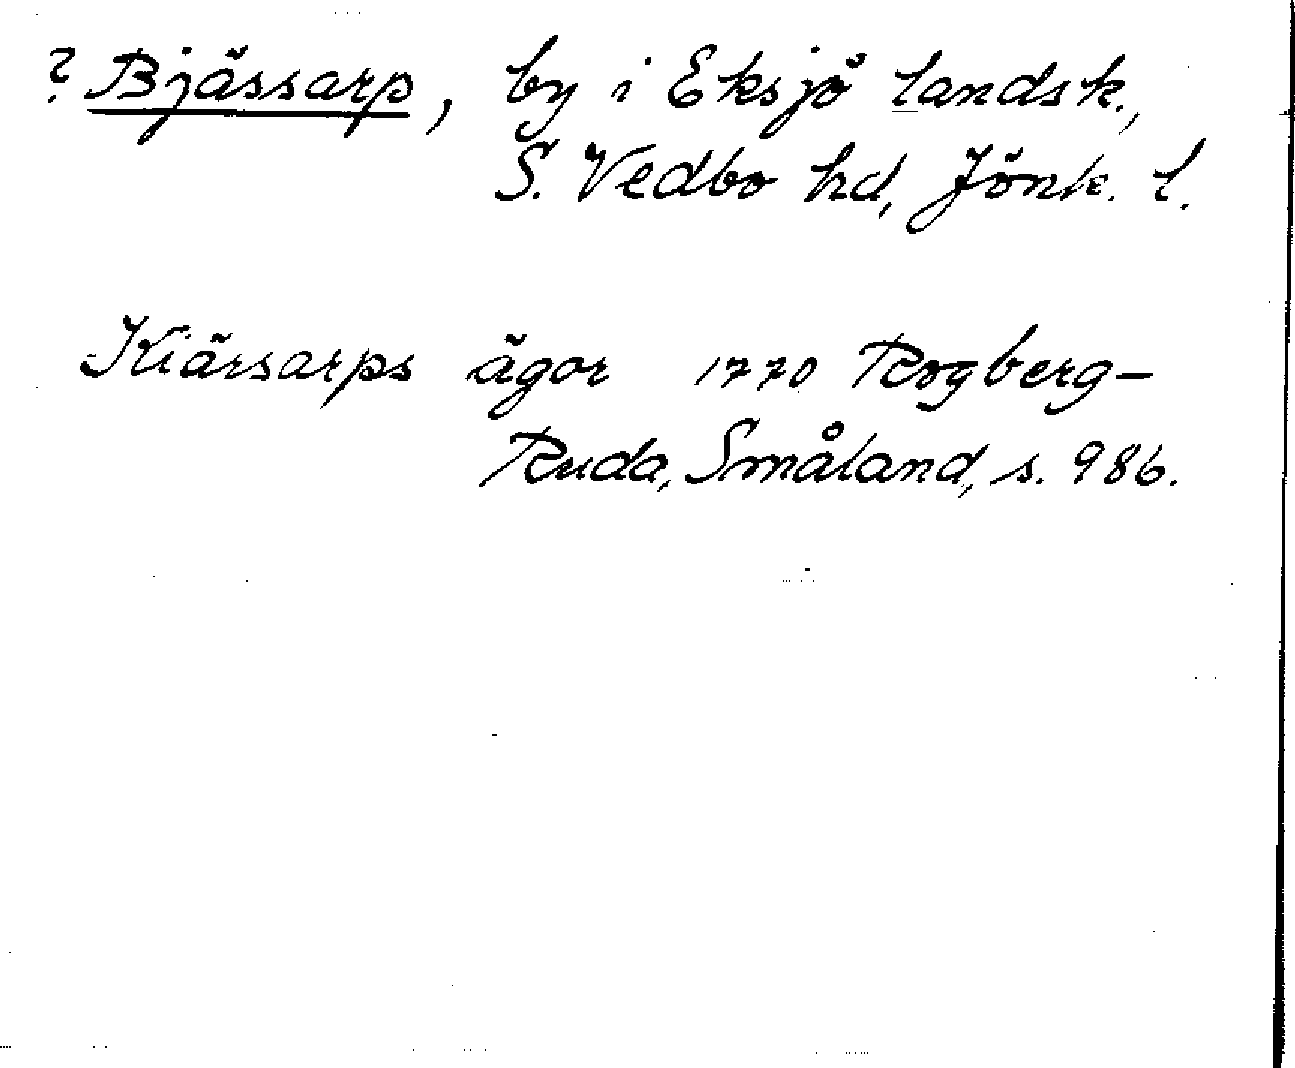 ? Bjässarp, by i Eksjö landsk.,
S. Vedbo hd, Jönk. l.
Kiärsarps ägor 1770 Rogberg-
Ruda, Småland, s. 986.